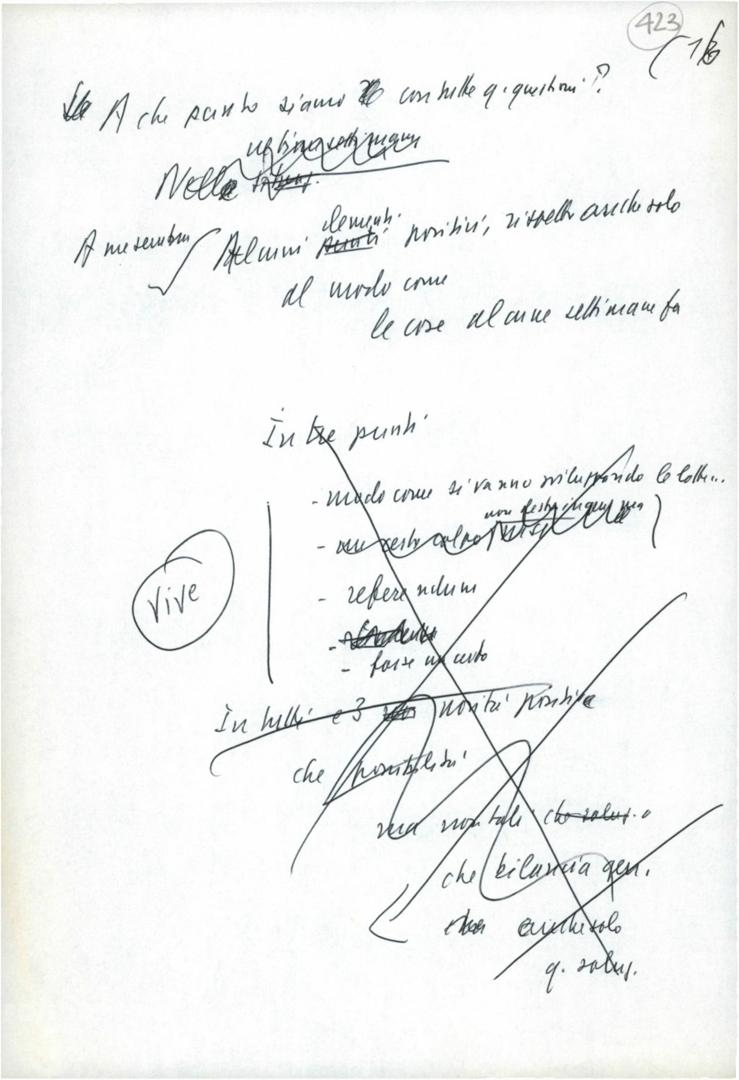 423
(16
A che punto siamo con tutte q. questioni?
ultime settimane
Nelle
A me sembra
elementi
Alcuni punti positivi, rispetto anche solo
al modo come
le cose alcune settimane fa
In tre punti
- modo come si vanno sviluppando le lotte...
non
- un certo
vive
- referendum
- forse un certo
In tutti e 3 novità positive
che possibilità
ma non tali che soluz. o
che bilancia gen.
anche solo
q. soluz.